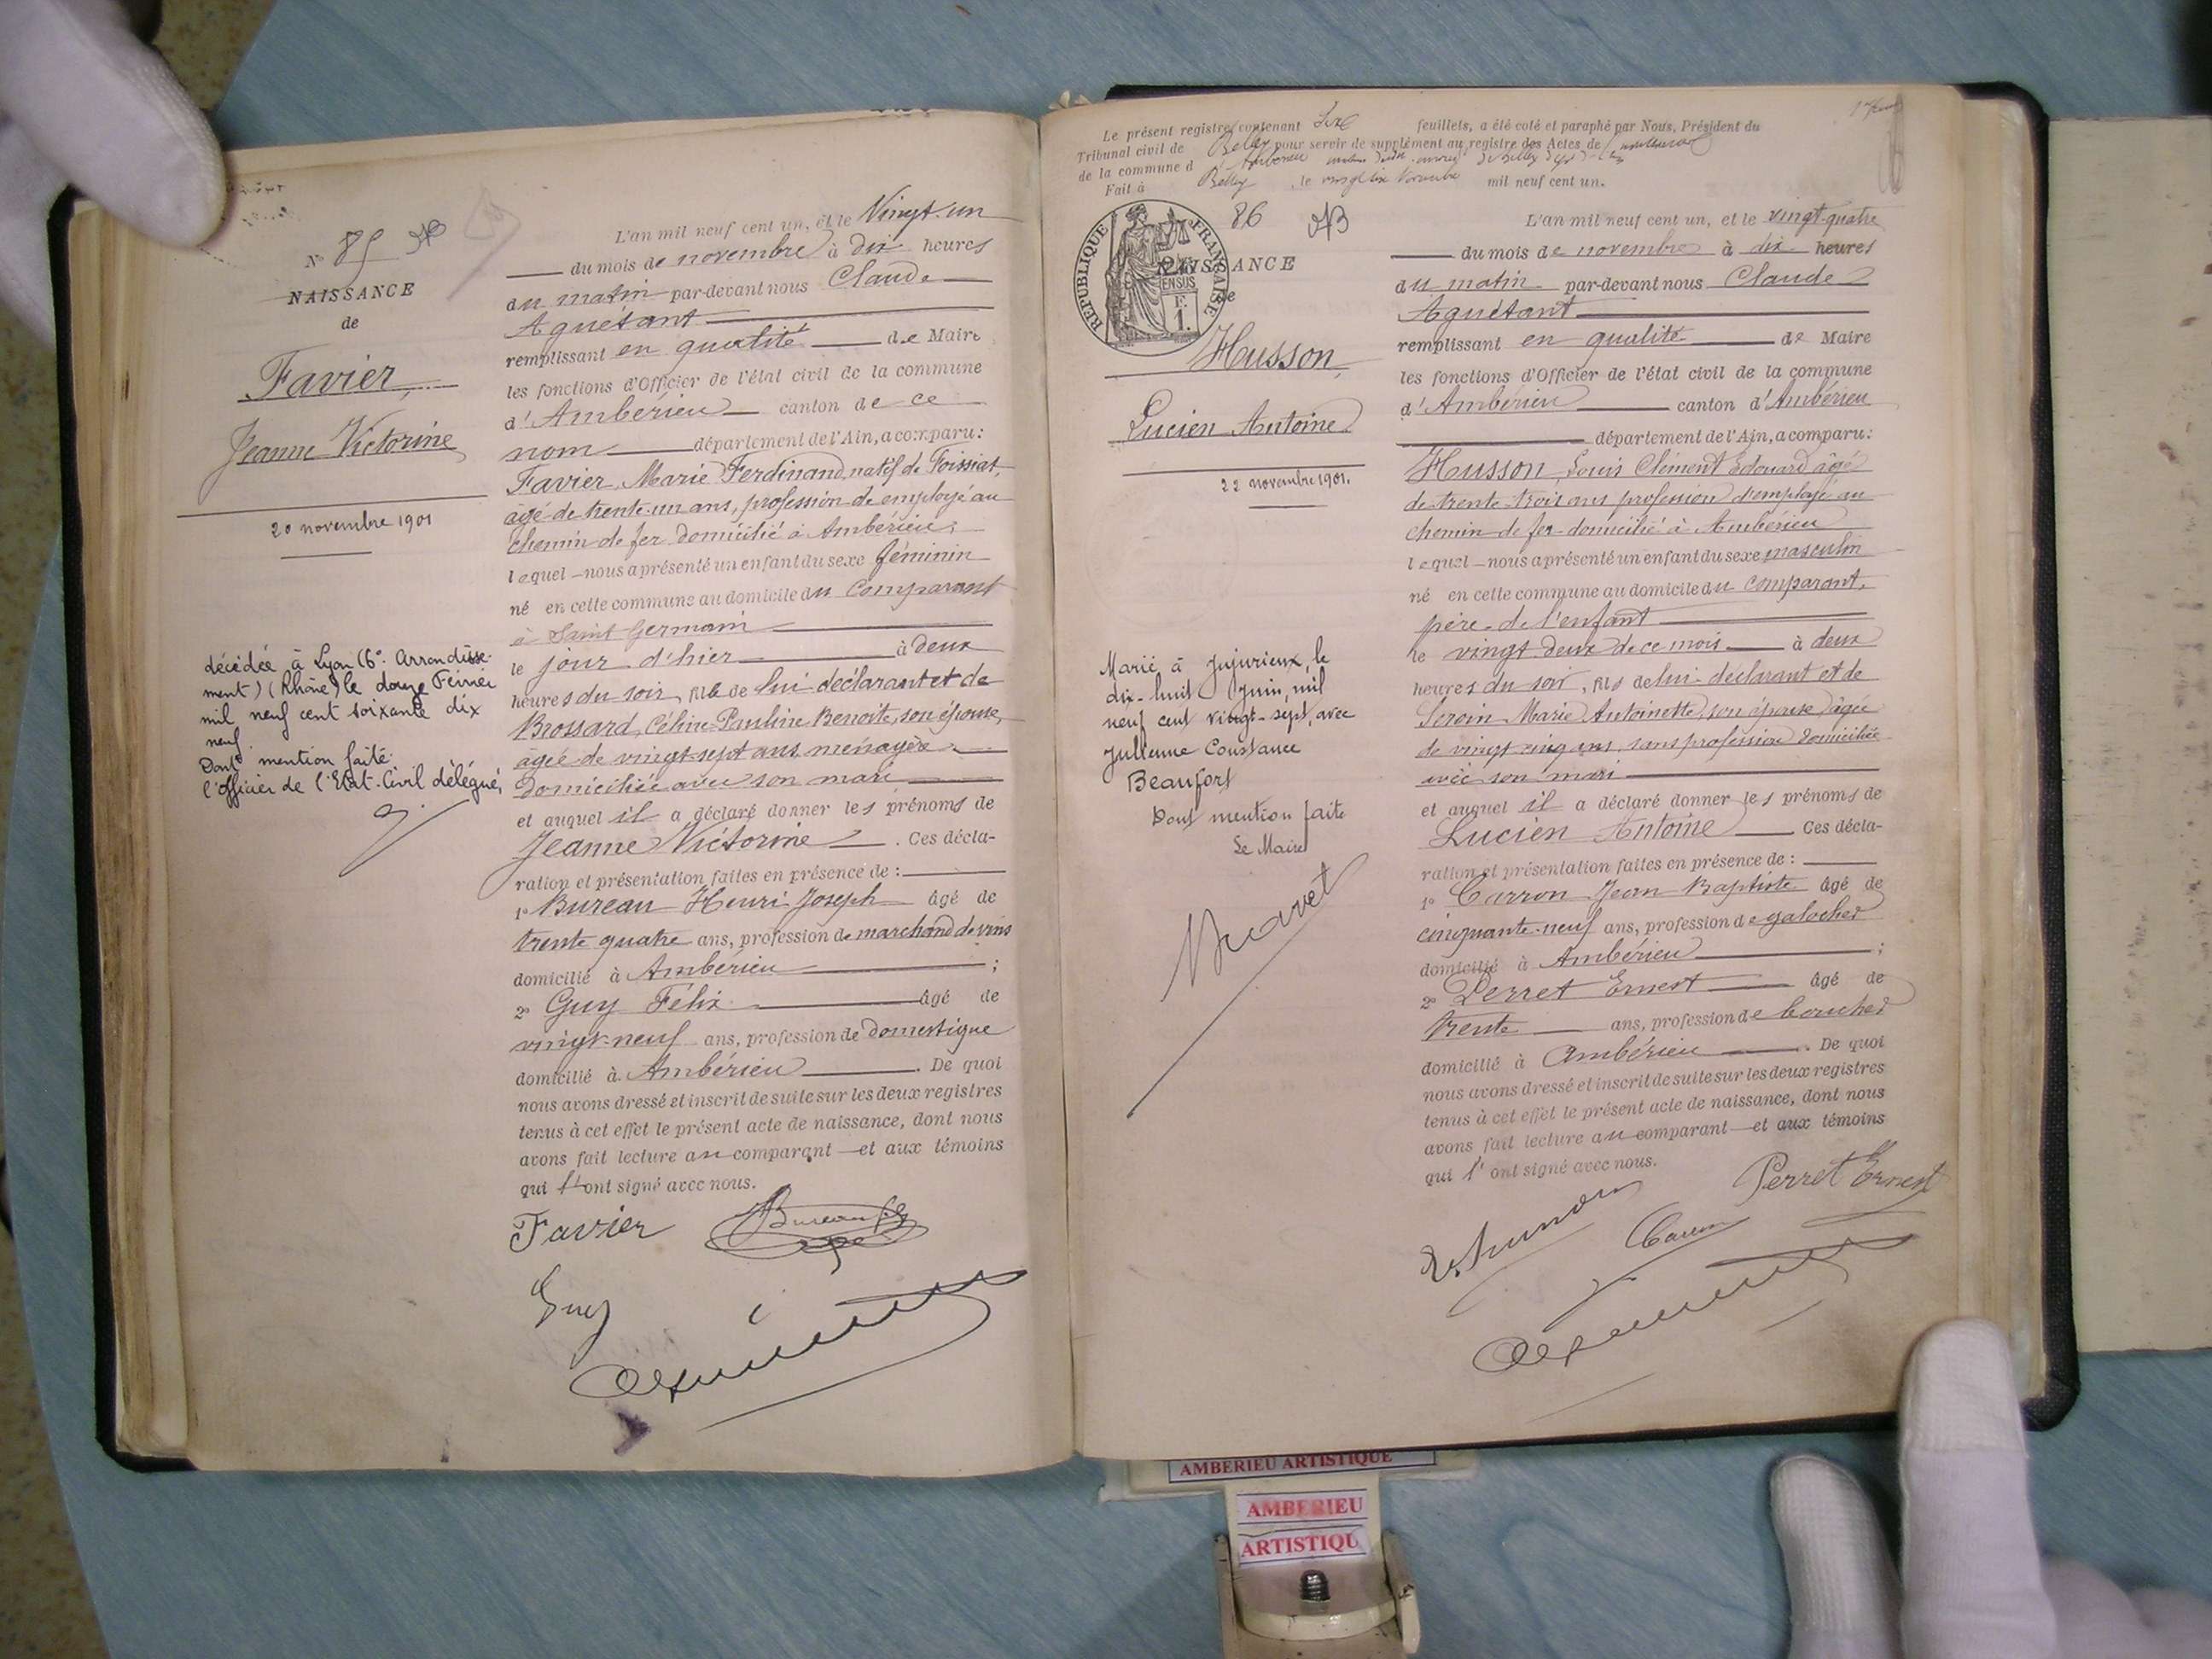 N° 85
NAISSANCE
de
Favier,
Jeanne Victorine
20 novembre 1901
décédée à Lyon (6e Arrondisse-
ment) (Rhône) le douze Février
mil neuf cent soixante dix
neuf.
Dont mention faite.
l'officier de l'Etat-Civil délégué,
L'an mil neuf cent un, et le Vingt un
du mois de novembre à dix heures
du matin par-devant nous Claude
Aguétant
remplissant en qualité de Maire
les fonctions d'Officier de l'état civil de la commune
d'Ambérieu canton de ce
nom département de l'Ain, a comparu :
Favier, Marie Ferdinand, natif de Foissiat,
âgé de trente-un ans, profession de employé au
chemin de fer domicilié à Ambérieu,
lequel nous a présenté un enfant du sexe féminin
né en cette commune au domicile du Comparant
à Saint Germain
le jour d'hier à deux
heures du soir, fille de lui déclarant et de
Brossard, Céline Pauline Benoite, son épouse,
âgée de vingt-sept ans, ménagère
domiciliée avec son mari
et auquel il a déclaré donner les prénoms de
Jeanne Victorine. Ces décla-
ration et présentation faites en présence de :
1° Bureau Henri Joseph âgé de
trente quatre ans, profession de marchand de vins
domicilié à Ambérieu ;
2° Guy Félix âgé de
vingt-neuf ans, profession de domestique
domicilié à Ambérieu. De quoi
nous avons dressé et inscrit de suite sur les deux registres
tenus à cet effet le présent acte de naissance, dont nous
avons fait lecture au comparant et aux témoins
qui l'ont signé avec nous.
Favier Bureau
Guy
Le présent registre contenant feuillets, a été coté et paraphé par Nous, Président du
Tribunal civil de Belley pour servir de supplément au registre des Actes de
de la commune d'Ambérieu
Fait à Belley, le mil neuf cent un.
86
REPUBLIQUE FRANÇAISE
NAISSANCE
de
Husson,
Lucien Antoine
22 novembre 1901.
Marié à Jujurieux, le
dix-huit Juin, mil
neuf cent vingt-sept, avec
Julienne Constance
Beaufort
Dont mention faite
Le Maire
L'an mil neuf cent un, et le vingt-quatre
du mois de novembre à dix heures
du matin par-devant nous Claude
Aguétant
remplissant en qualité de Maire
les fonctions d'Officier de l'état civil de la commune
d'Ambérieu canton d'Ambérieu
département de l'Ain, a comparu :
Husson, Louis Clément Edouard âgé
de trente-trois ans profession d'employé au
chemin de fer domicilié à Ambérieu
lequel nous a présenté un enfant du sexe masculin
né en cette commune au domicile du comparant,
père de l'enfant
le vingt-deux de ce mois à deux
heures du soir, fils de lui déclarant et de
Marie Antoinette, son épouse âgée
de vingt cinq ans, sans profession domiciliée
avec son mari
et auquel il a déclaré donner les prénoms de
Lucien Antoine Ces décla-
ration et présentation faites en présence de :
1° Carron Jean Baptiste âgé de
cinquante-neuf ans, profession de galochier
domicilié à Ambérieu ;
2° Perret Ernest âgé de
trente ans, profession de boucher
domicilié à Ambérieu. De quoi
nous avons dressé et inscrit de suite sur les deux registres
tenus à cet effet le présent acte de naissance, dont nous
avons fait lecture au comparant et aux témoins
qui l'ont signé avec nous.
Perret Ernest
Carron
AMBERIEU ARTISTIQUE
AMBERIEU
ARTISTIQU